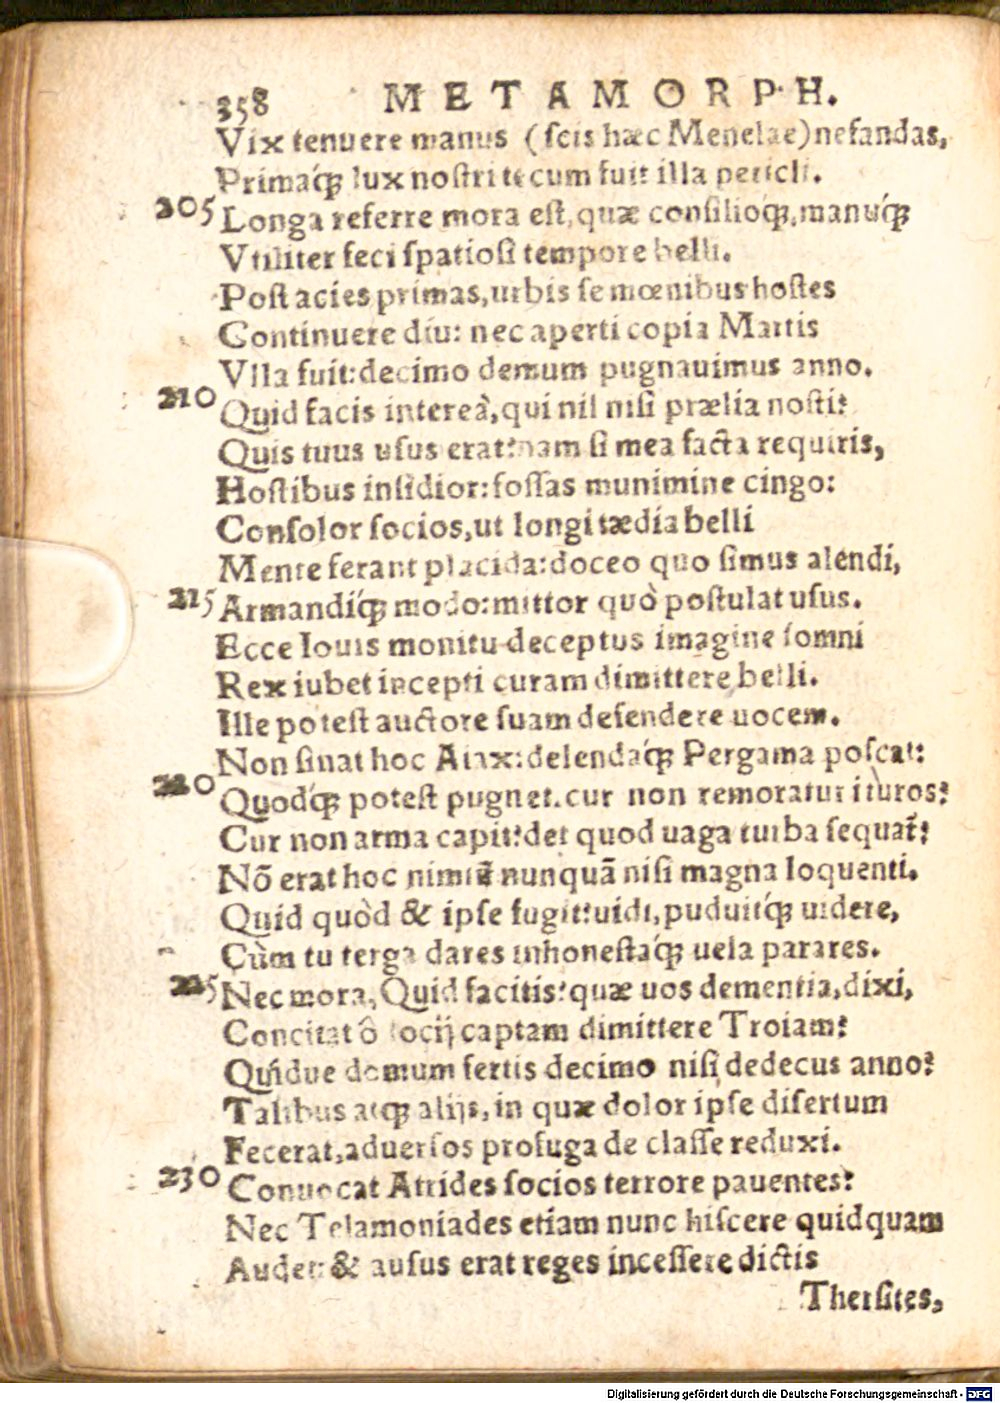 358 METAMORPH.
Vix tenuere manus (ſcis hæc Menelae) nefandas,
Primaq́ꝫ lux noſtri tecum fuit illa pericli.
205 Longa referre mora eſt, quæ conſilioq́ꝫ, manuq́ꝫ
Vtiliter feci ſpatioſi tempore belli.
Poſt acies primas, urbis ſe mœnibus hoſtes
Continuere diu: nec aperti copia Martis
Vlla fuit: decimo demum pugnauimus anno.
210 Quid facis intereà, qui nil niſi prælia noſti?
Quis tuus uſus erat? nam ſi mea facta requiris,
Hoſtibus inſidior: foſſas munimine cingo:
Conſolor ſocios, ut longi tædia belli
Mente ferant placida: doceo quo ſimus alendi,
215 Armandiq́ꝫ modo: mittor quò poſtulat uſus.
Ecce Iouis monitu deceptus imagine ſomni
Rex iubet incepti curam dimittere belli.
Ille poteſt auctore ſuam defendere uocem.
Non ſinat hoc Aiax: delendaq́ꝫ Pergama poſcat:
220 Quodq́ꝫ poteſt pugnet. cur non remoratur ituros?
Cur non arma capit? det quod uaga turba ſequat᷑?
Nō erat hoc nimiū nunquā niſi magna loquenti.
Quid quòd & ipſe fugit? uidi, puduitq́ꝫ uidere,
Cùm tu terga dares inhoneſtaq́ꝫ uela parares.
225 Nec mora, Quid facitis? quæ uos dementia, dixi,
Concitat ô ſocij captam dimittere Troiam?
Quidue domum fertis decimo niſi dedecus anno?
Talibus atq́ꝫ alijs, in quæ dolor ipſe diſertum
Fecerat, aduerſos profuga de claſſe reduxi.
230 Conuocat Atrides ſocios terrore pauentes:
Nec Telamoniades etiam nunc hiſcere quidquam
Audet: & auſus erat reges inceſſere dictis
Therſites,
Digitalisierung gefördert durch die Deutsche Forschungsgemeinschaft - DFG